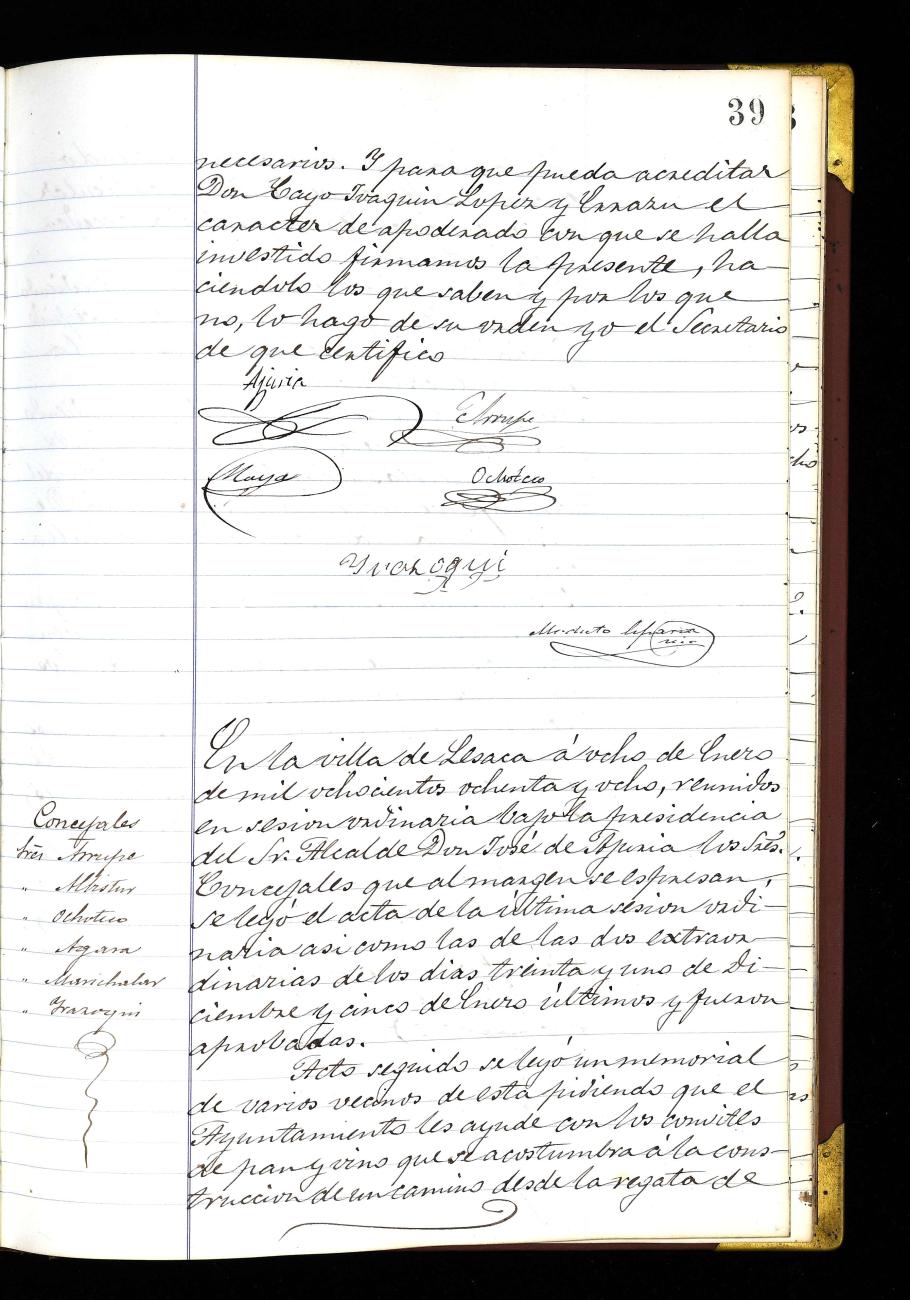 39
necesarios. Y para que pueda acreditar
Don Cayo Joaquin Lopez y Errazu el
caracter de apoderado con que se halla
investido firmamos la presente, ha-
ciendolo los que saben y por los que
no, lo hago de su orden yo el Secretario
de que certifico
Ajuria
Arrupe
Maya
Ochoteco
Yrazoqui
Modesto
En la villa de Lesaca á ocho de Enero
de mil ochocientos ochenta y ocho, reunidos
en sesion ordinaria bajo la presidencia
del Sr. Alcalde Don José de Ajuria los Sres.
Concejales que al margen se espresan,
se leyó el acta de la última sesion ordi-
naria asi como las de las dos extraor-
dinarias de los dias treinta y uno de Di-
ciembre y cinco de Enero últimos y fueron
aprobadas.
Concejales
Sres Arrupe
" Albistur
" Ochoteco
" Agara
" Marichalar
" Yrazoqui
Acto seguido se leyó un memorial
de varios vecinos de esta pidiendo que el
Ayuntamiento les ayude con los convites
de pan y vino que se acostumbra á la cons-
truccion de un camino desde la regata de